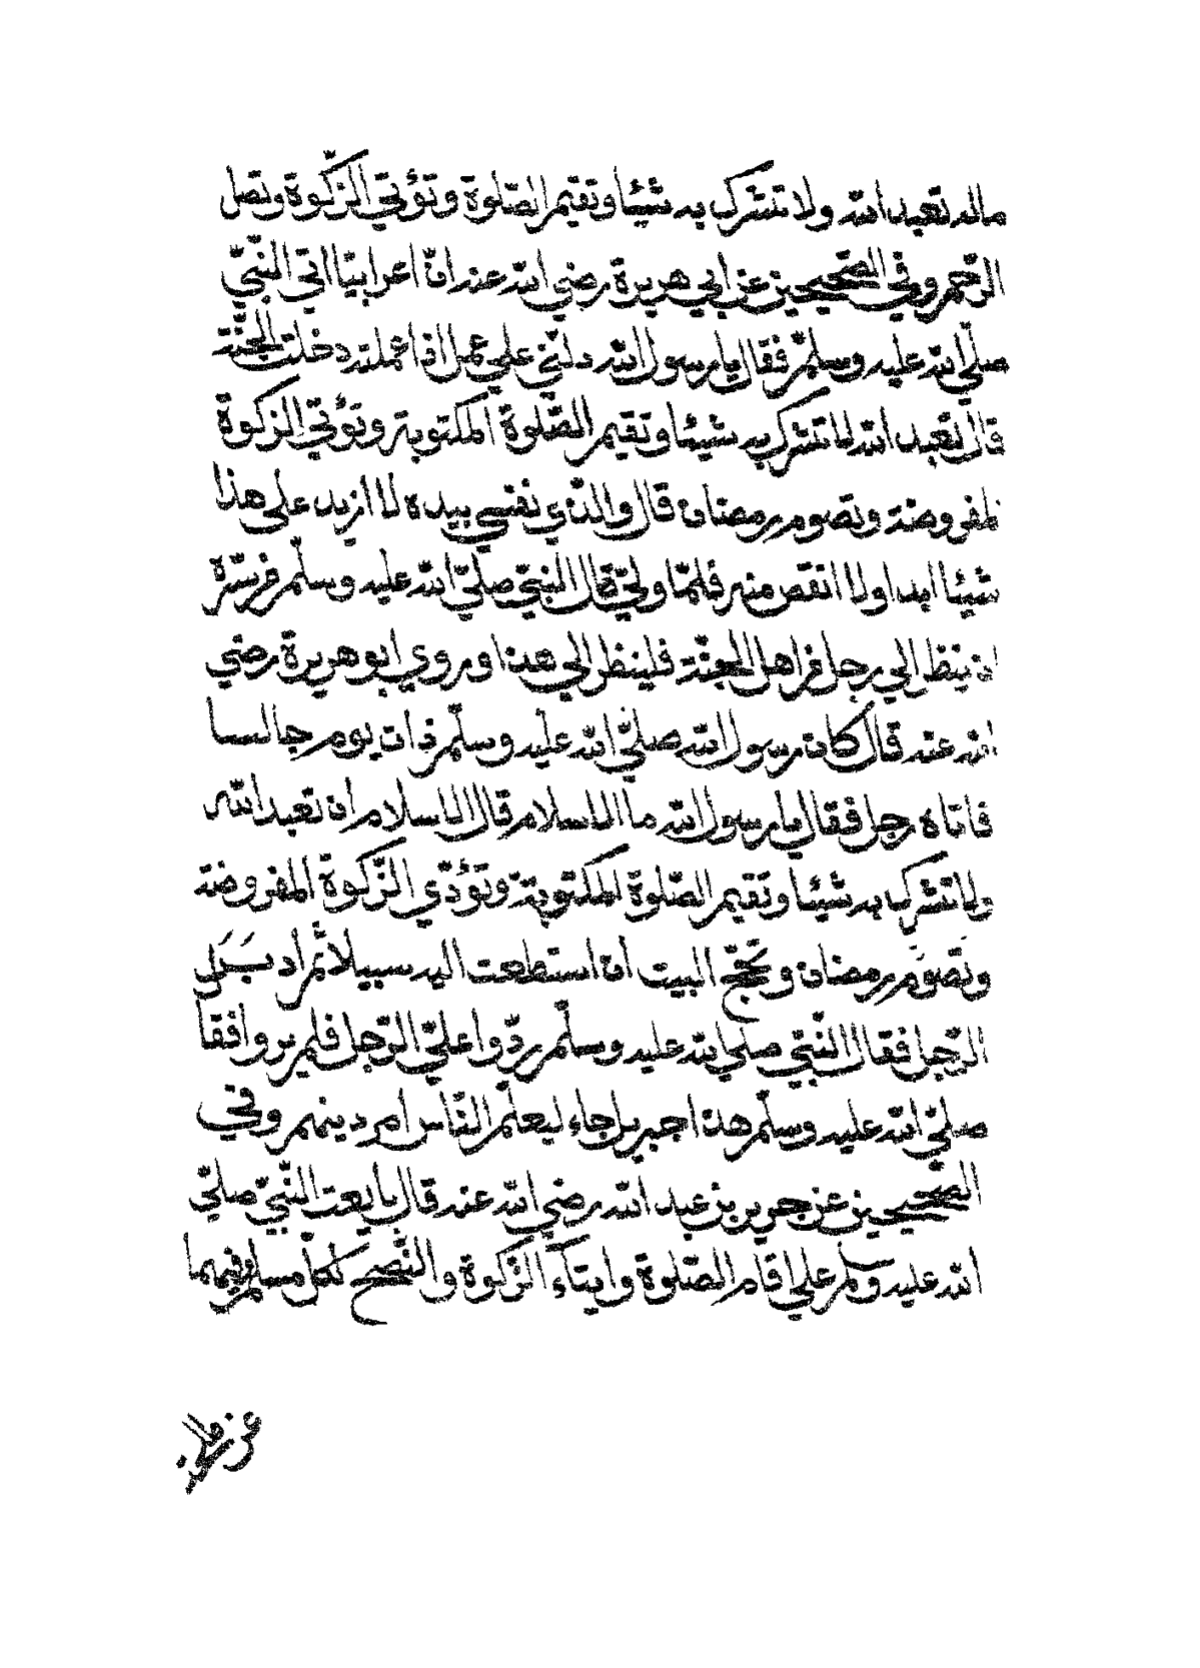 ماله تعبد الله ولا تشرك به شيئا وتقيم الصّلوة وتؤتي الزّكوة وتصل
الرّحم وفي الصّحيحين عن ابي هريرة رضي الله عنه انّ اعرابيّا اتى النّبيّ
صلّي الله عليه وسلّم فقال يا رسول الله دلّني علي عمل اذا عملته دخلت الجنّة
قال تعبد الله لا تشرك به شيئا وتقيم الصّلوة المكتوبة وتؤتي الزّكوة
المفروضة وتصوم رمضان قال والّذي نفسي بيده لا ازيد على هذا
شيئا ابدا ولا انقص منه فلمّا ولّي قال النّبيّ صلّي الله عليه وسلّم من سرّه
ان ينظر الي رجل من اهل الجنّة فلينظر الي هذا وروي ابو هريرة رضي
الله عنه قال كان رسول الله صلّي الله عليه وسلّم ذات يوم جالسا
فاتاه رجل فقال يا رسول الله ما الاسلام قال الاسلام ان تعبد الله
ولا تشرك به شيئا وتقيم الصّلوة المكتوبة وتؤدّي الزّكوة المفروضة
وتصوم رمضان وتحجّ البيت ان استطعت اليه سبيلا ثمّ ادبَرَ
الرّجل فقال النّبيّ صلي الله عليه وسلّم ردّوا عليّ الرّجل فلم يروا فقال
صلّي الله عليه وسلّم هذا جبريل جاء ليعلّم النّاس امر دينهم وفي
الصّحيحين عن جرير بن عبد الله رضي الله عنه قال بايعت النّبيّ صلّي
الله عليه وسلم علي اقام الصّلوة وايتآء الزّكوة والنّصح لكلّ مسلم وفيهما